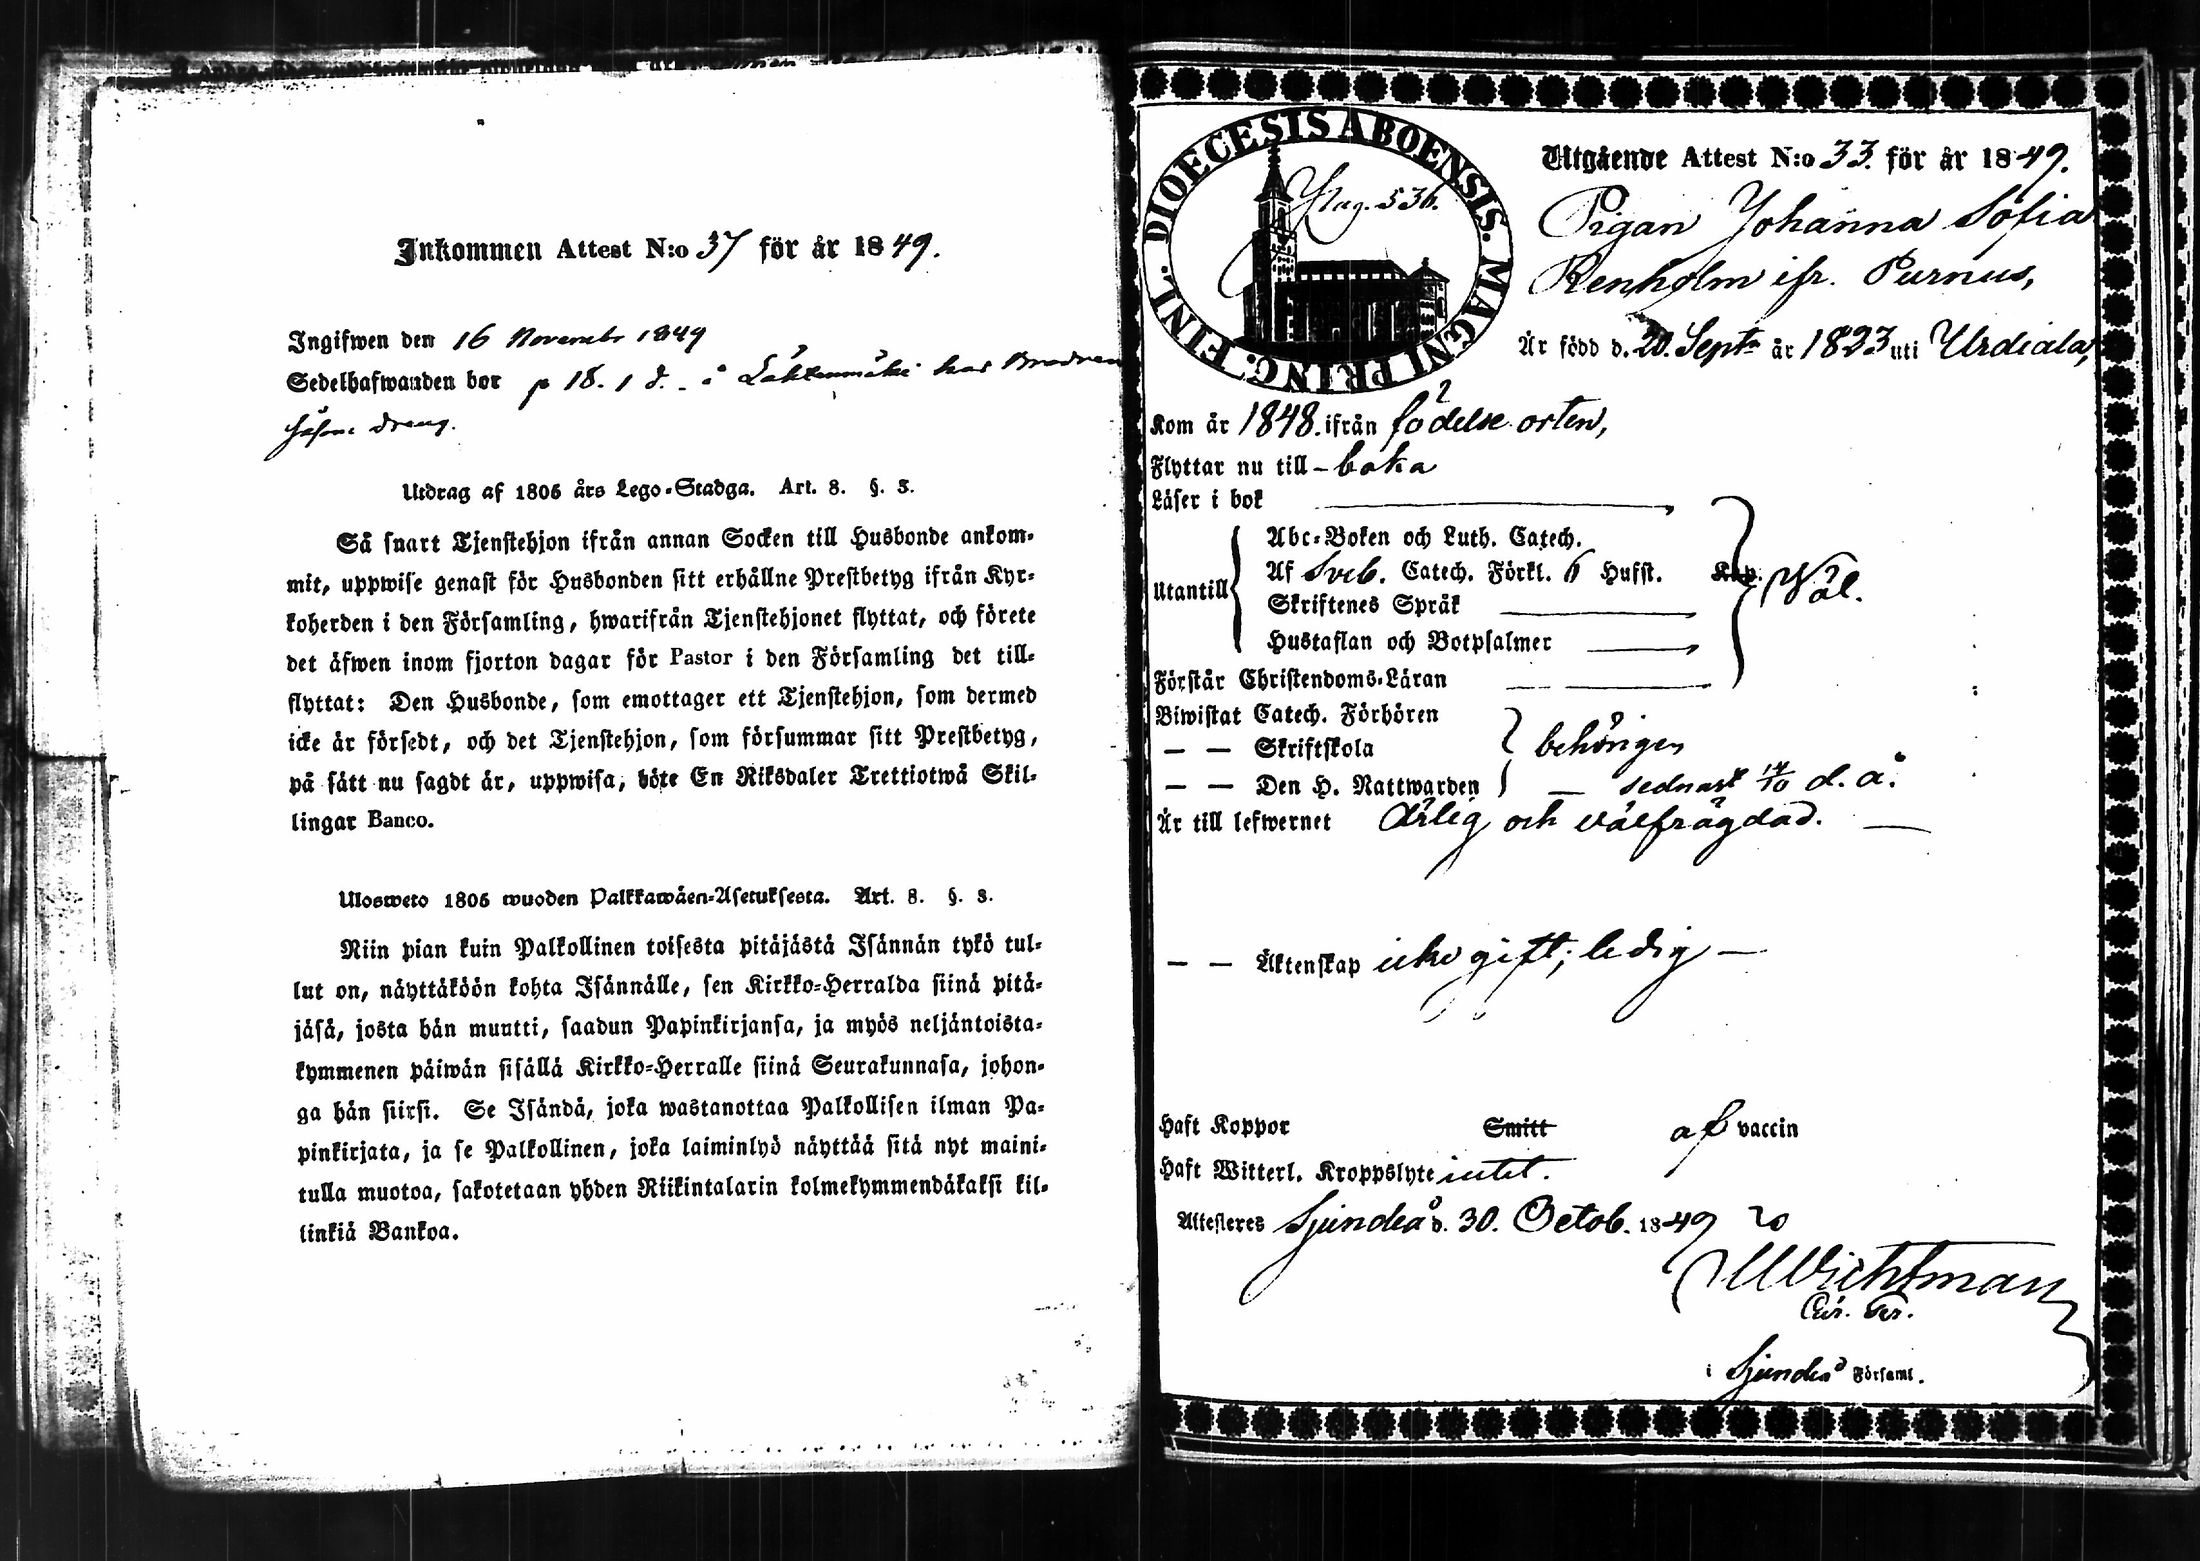 Inkommen Attest N:o 37 för år 1849.
Ingifwen den 16 November 1849
Sedelhafwanden bor p 18. 1 d. å
dreng.
Utdrag af 1805 års Lego-Stadga. Art. 8. §. 3.
Så snart Tjenstehjon ifrån annan Socken till Husbonde ankom-
mit, uppwise genast för Husbonden sitt erhållne Prestbetyg ifrån Kyr-
koherden i den Församling, hwarifrån Tjenstehjonet flyttat, och förete
det äfwen inom fjorton dagar för Pastor i den Församling det till-
flyttat: Den Husbonde, som emottager ett Tjenstehjon, som dermed
icke är försedt, och det Tjenstehjon, som försummar sitt Prestbetyg,
på sätt nu sagdt är, uppwisa, böte En Riksdaler Trettiotwå Skil-
lingar Banco.
Ulosweto 1805 wuoden Palkkawäen-Asetuksesta. Art. 8. §. 3.
Niin pian kuin Palkollinen toisesta pitäjästä Isännän tykö tul-
lut on, näyttäköön kohta Isännälle, sen Kirkko-Herralda siinä pitä-
jäsä, josta hän muutti, saadun Papinkirjansa, ja myös neljäntoista-
kymmenen päiwän sisällä Kirkko-Herralle siinä Seurakunnasa, johon-
ga hän siirsi. Se Isändä, joka wastanottaa Palkollisen ilman Pa-
pinkirjata, ja se Palkollinen, joka laiminlyö näyttää sitä nyt maini-
tulla muotoa, sakotetaan yhden Riikintalarin kolmekymmendäkaksi kil-
linkiä Bankoa.
DIOECESIS ABOENSIS. MAGNI PRINC. FINL.
Pag. 536.
Utgående Attest N:o 33. för år 1849.
Pigan Johanna Sofia
Renholm ifr. Purnus,
Är född d. 20. Septr år 1823 uti Urdiala,
Kom år 1848. ifrån födelse orten,
Flyttar nu till - baka
Läser i bok
Utantill
Abc-Boken och Luth. Catech.
Af Sveb. Catech. Förkl. 6 Hufst. Kap.
Wäl.
Skriftenes Språk
Hustaflan och Botpsalmer
Förstår Christendoms-Läran
Biwistat Catech. Förhören
— — Skriftskola behörigen
— — Den H. Nattwarden — sednast 14/10 d. å.
Är till lefwernet Ärlig och välfrägdad. —
— — Äktenskap icke gift; ledig —
Haft Koppor Smitt af vaccin
Haft Witterl. Kroppslyte intet.
Attesteres Sjundeå d. 30. Octob. 1849
Wichtman
i Sjundeå Församl.